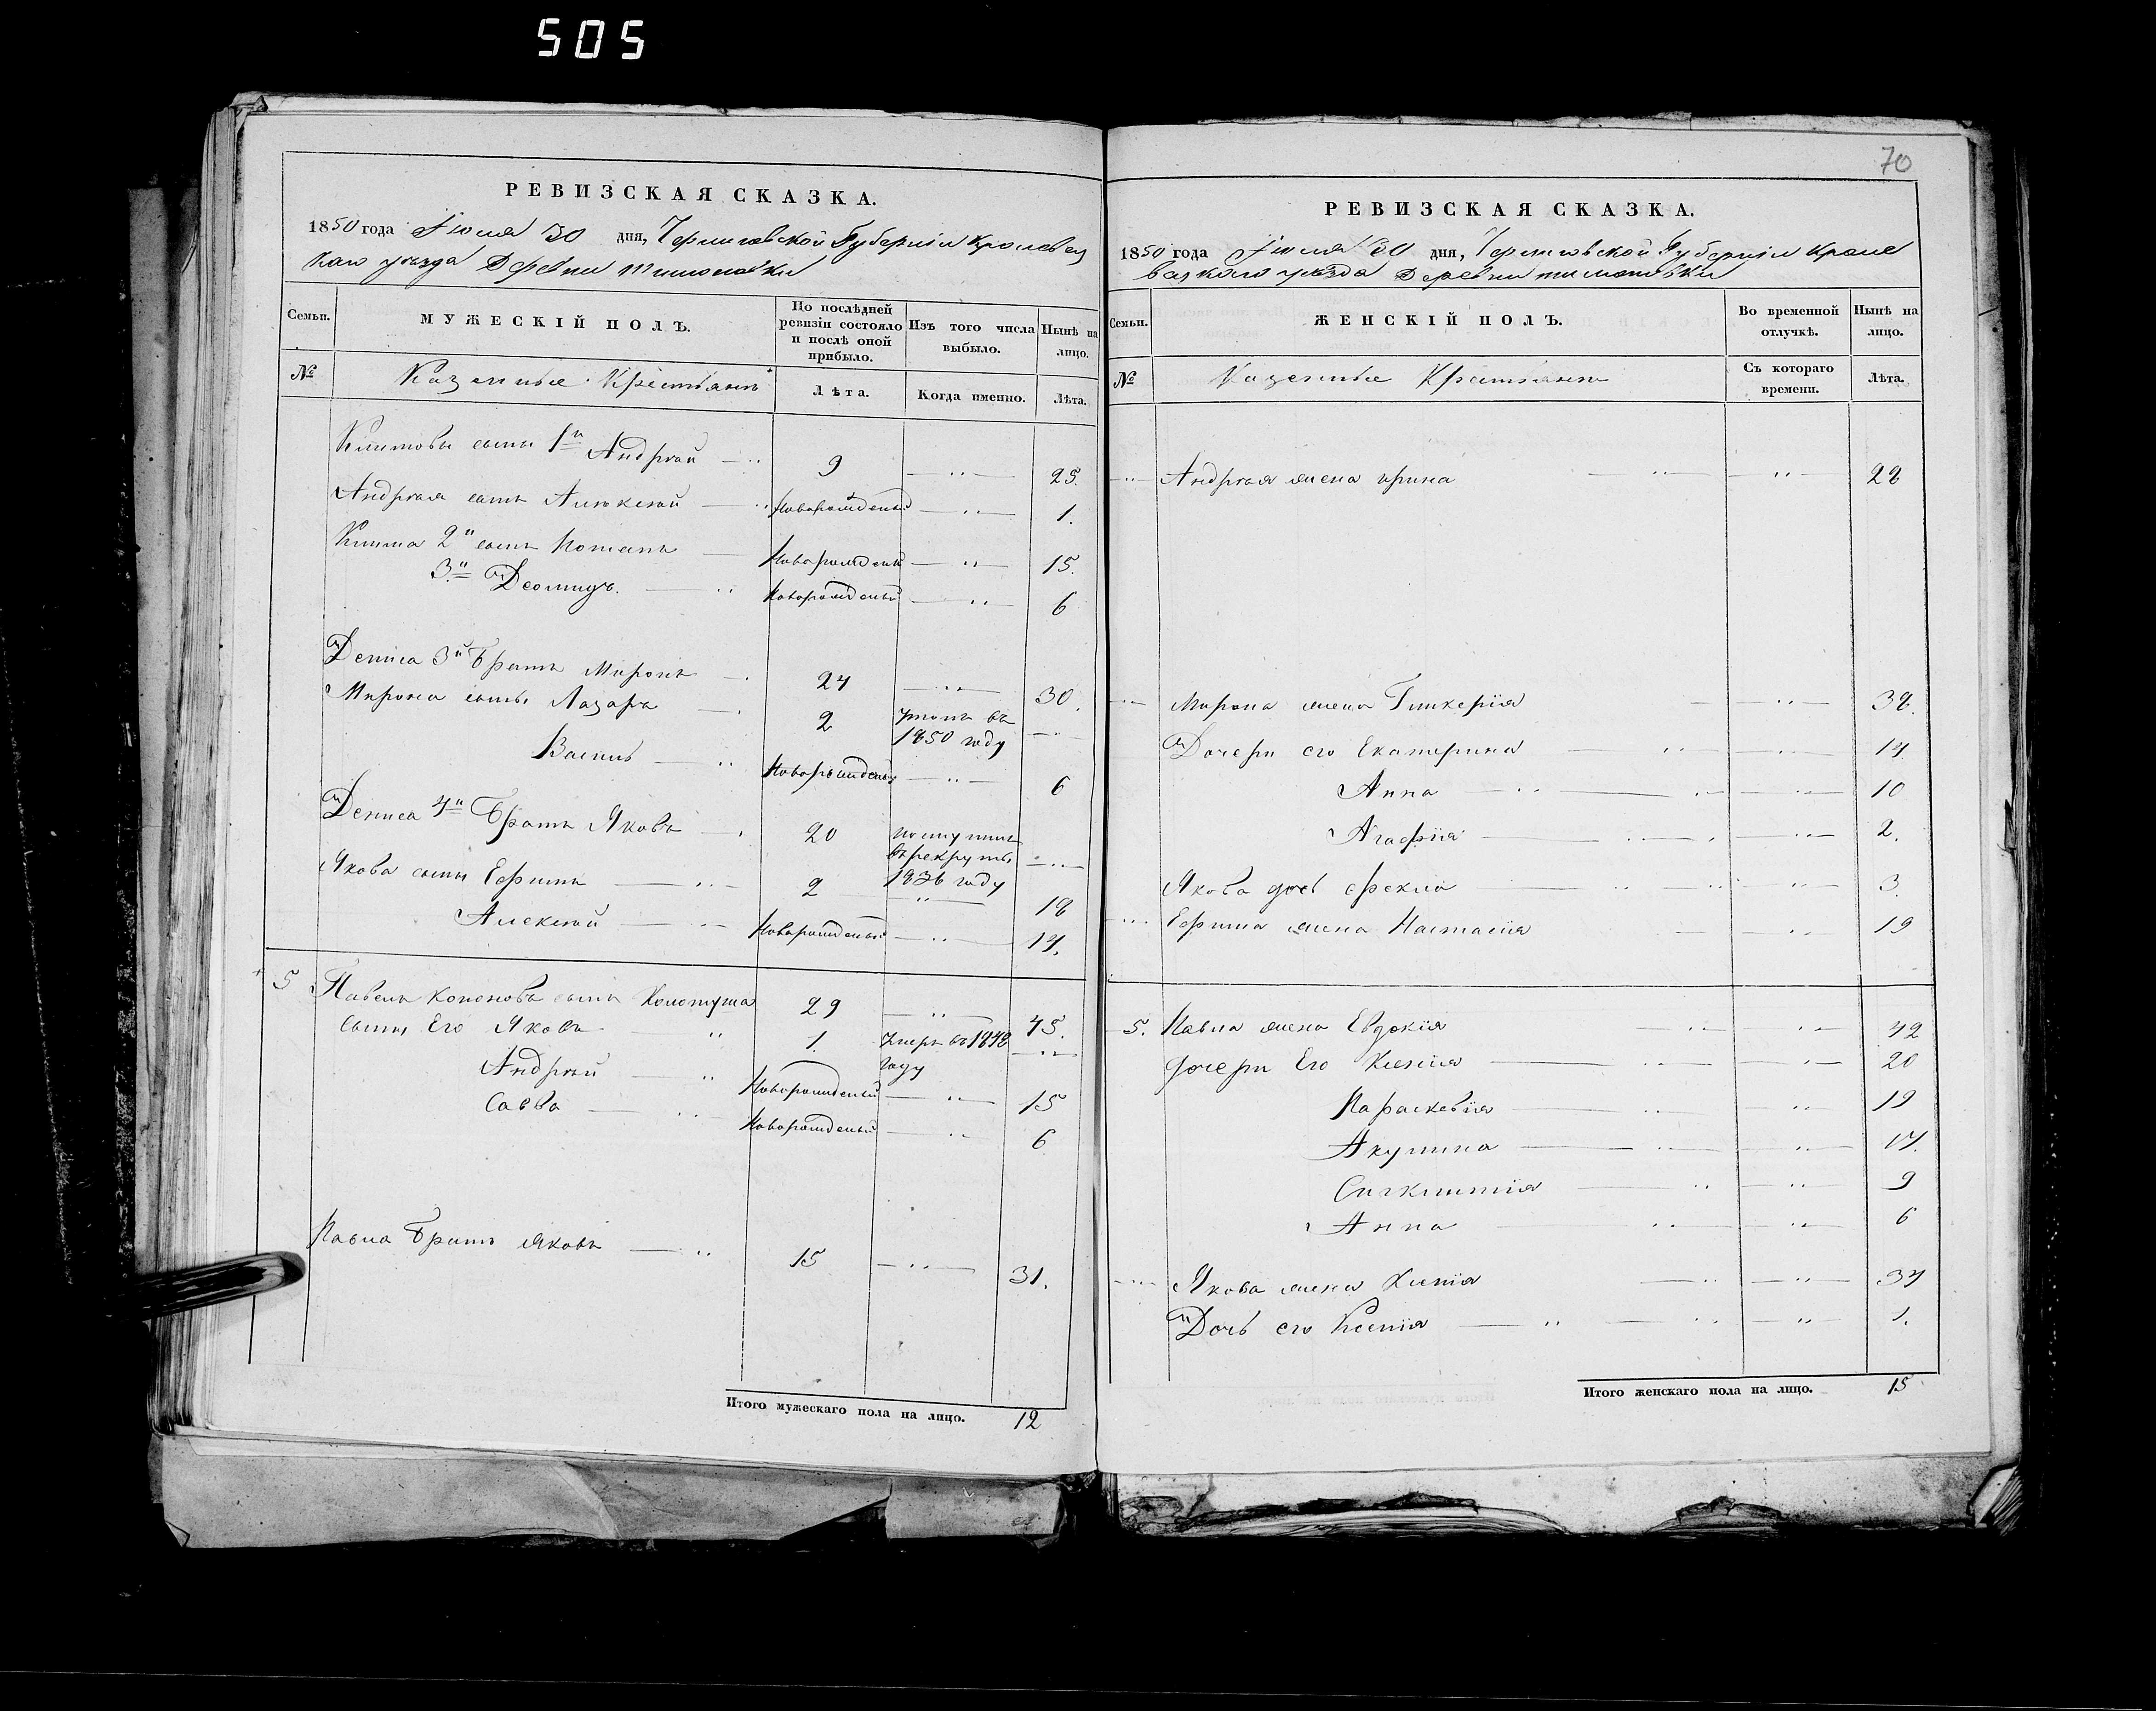 505
РЕВИЗСКАЯ СКАЗКА.
1850 года Іюля 30 дня, Черниговской Губерніи Кролевец
каго уезда Деревни
Семьи.
МУЖЕСКІЙ ПОЛЪ.
По послѣдней ревизіи состояло и послѣ оной прибыло.
Изъ того числа выбыло.
Нынѣ на лицо.
№
Казенные Крестьяне
Лѣта.
Когда именно.
Лѣта.
Климовы сыны 1й Андрей 9 25.
Андрея сынъ Алексей Новорожденый 1.
Клима 2й сынъ Потапъ Новорожденый 15.
3й Деомидъ. Новорожденый 6
Дениса 3й Братъ Миронъ 24 30.
Мирона сыны Лазарь 2 1850 году
Василь Новорожденый 6
Дениса 4й Братъ Яковъ 20 поступилъ
въ рекруты
1836 году
Якова сыны Ефимъ 2 18
Алексей Новорожденый 14.
5 Павелъ Кононовъ сынъ Колотуша 29 45.
сыны Его Яковъ 1. умеръ въ 1848
году
Андрей Новорожденый 15
Савва Новорожденый 6
Павла Братъ Яковъ 15 31.
Итого мужескаго пола на лицо. 12
70
РЕВИЗСКАЯ СКАЗКА.
1850 года Іюля 30 дня, Черниговской Губерніи Кроле
вецкаго уезда Деревни тимоновки
Семьи.
ЖЕНСКІЙ ПОЛЪ.
Во временной отлучкѣ.
Нынѣ на лицо.
№
Казенные Крестьяне
Съ котораго времени.
Лѣта.
Андрея жена ирина 22
Мирона жена Гликерія 38.
Дочери его Екатерина 14
Анна 10
Агафія 2.
Якова дочь 3.
Ефима жена Настасія 19
5. Павла жена Евдокія 42
дочери Его 20
Параскевія 19
Акулина 14.
9
Анна 6
Якова жена 34
Дочь его Ксенія 1.
Итого женскаго пола на лицо. 15